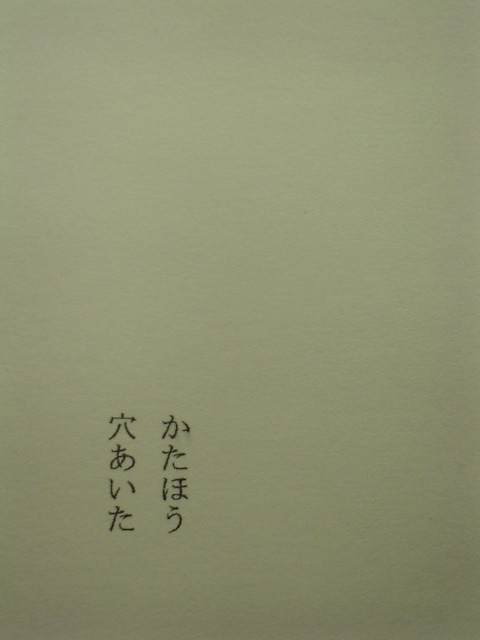 かたほう
穴あいた